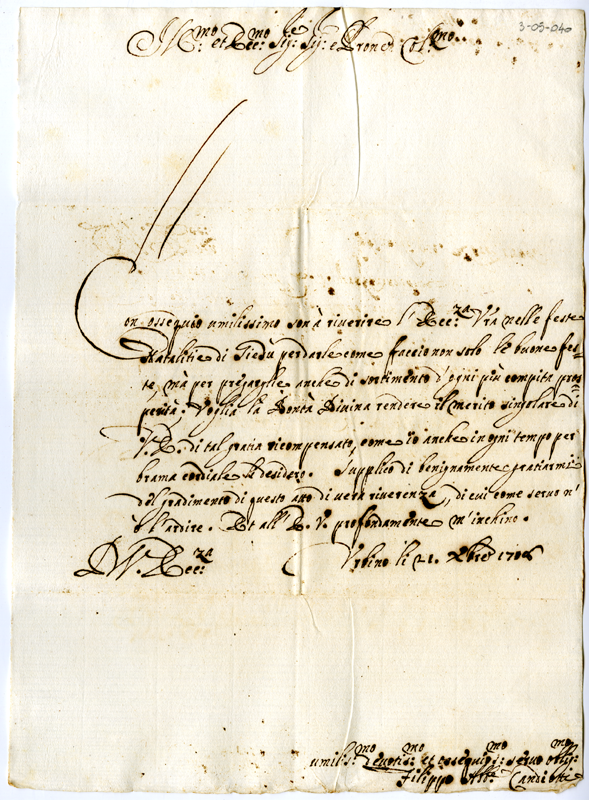 3-05-040
Ill.mo et Ecc.mo Sig.re Sig.re e Pron Col.mo
Con ossequio umilissimo son à riuerire l'Ecc.za Vra nelle feste
Natalitie di Giesù per darle come faccio non solo le buone fes=
te, mà per pregargli anche di sortimento d'ogni più compita pros=
perità. Voglia la Bontà Diuina rendere il merito singolare di
V. E. di tal gratia ricompensato, come io anche in ogni tempo per
brama cordiale le desidero. Supplico di benignamente gratiarmi
del gradimento di questo atto di uera riuerenza, di cui come seruo n'
ò l'ardire. Et all'E. V. profondamente m'inchino.
D. V. Ecc.za Vrbino li 21. Xbre 1706
umilis.mo deuotis.mo et ossequios.mo seruo obblig.mo
Filippo Candiotti